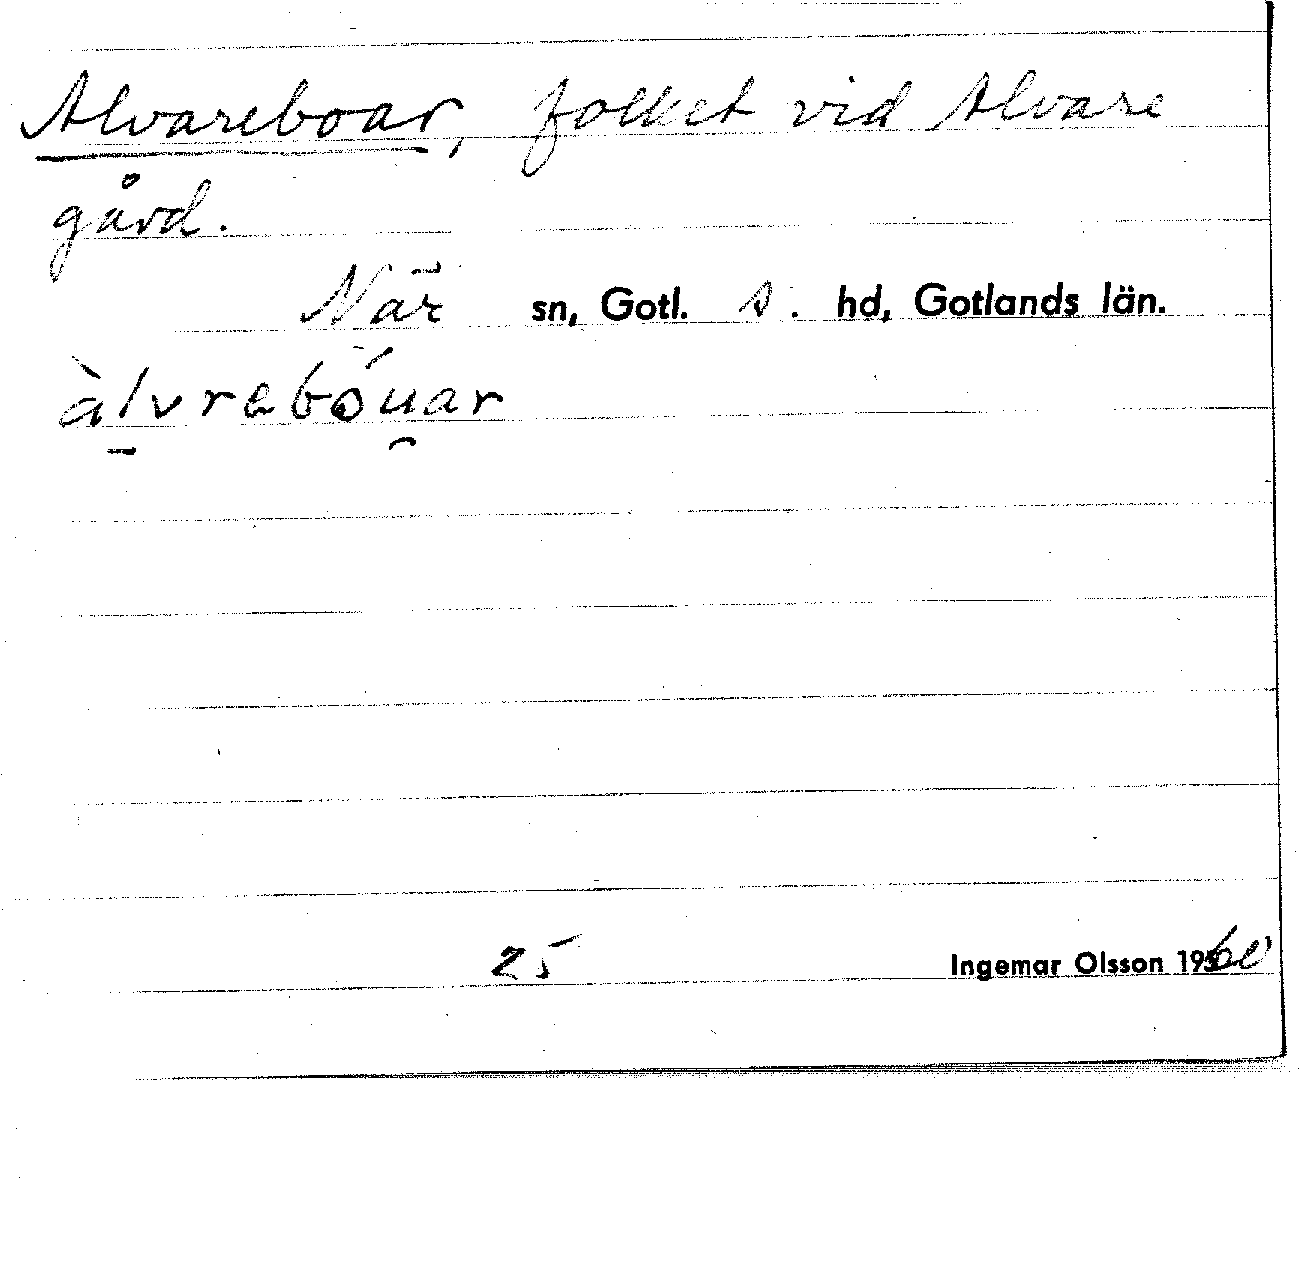 Alvareboar, folket vid Alvare
gård.
När sn, Gotl. s. hd, Gotlands län.
àl̠vrebóu̯ar
25 Ingemar Olsson 1960